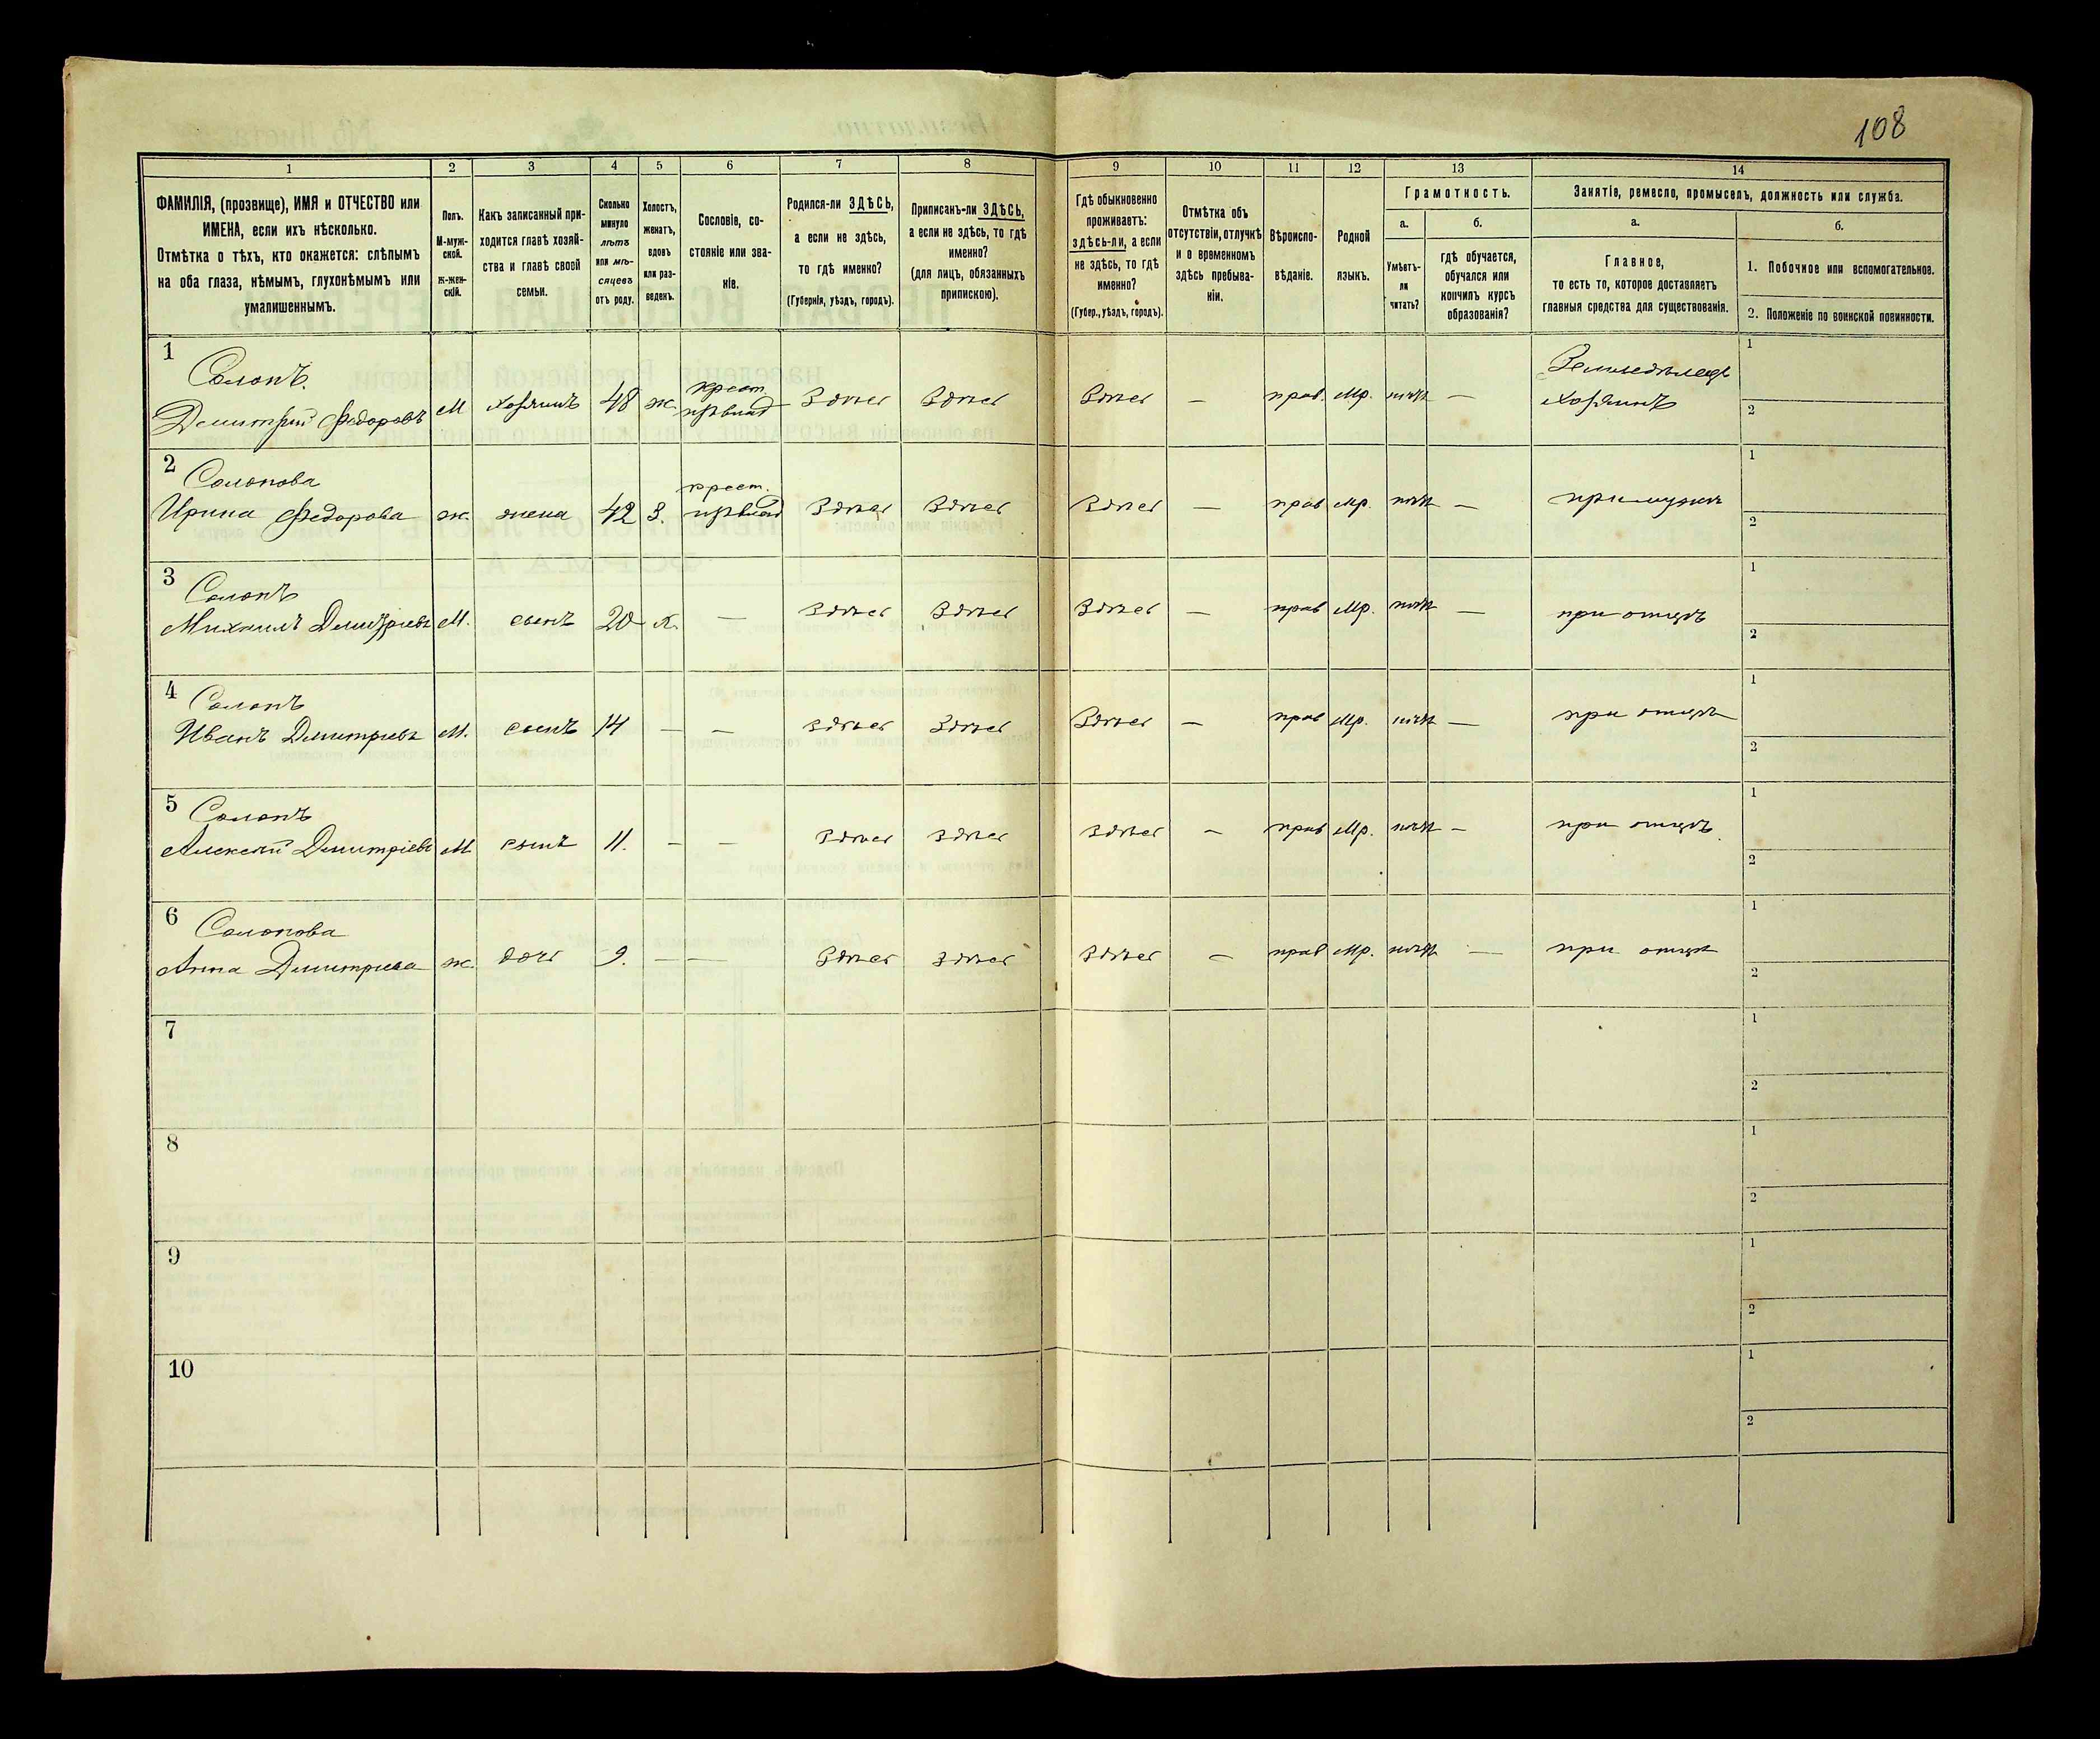 108
1 2 3 4 5 6 7 8 9 10 11 12 13 14
ФАМИЛІЯ, (прозвище), ИМЯ и ОТЧЕСТВО или
ИМЕНА, если ихъ нѣсколько.
Отмѣтка о тѣхъ, кто окажется: слѣпымъ
на оба глаза, нѣмымъ, глухонѣмымъ или
умалишеннымъ.
Полъ.
М-муж-
ской.
ж-жен-
скій.
Какъ записанный при-
ходится главѣ хозяй-
ства и главѣ своей
семьи.
Сколько
минуло
лѣтъ
или мѣ-
сяцевъ
отъ роду.
Холостъ,
женатъ,
вдовъ
или раз-
веденъ.
Сословіе, со-
стояніе или зва-
ніе.
Родился-ли ЗДѢСЬ,
а если не здѣсь,
то гдѣ именно?
(Губернія, уѣздъ, городъ).
Приписанъ-ли ЗДѢСЬ,
а если не здѣсь, то гдѣ
именно?
(для лицъ, обязанныхъ
припискою).
Гдѣ обыкновенно
проживаетъ:
здѣсь-ли, а если
не здѣсь, то гдѣ
именно?
(Губер., уѣздъ, городъ).
Отмѣтка объ
отсутствіи, отлучкѣ
и о временномъ
здѣсь пребыва-
ніи.
Вѣроиспо-
вѣданіе.
Родной
языкъ.
Грамотность.
а.
Умѣетъ-
ли
читать?
б.
гдѣ обучается,
обучался или
кончилъ курсъ
образованія?
Занятіе, ремесло, промыселъ, должность или служба.
а.
Главное,
то есть то, которое доставляетъ
главныя средства для существованія.
б.
1. Побочное или вспомогательное.
2. Положеніе по воинской повинности.
1
Солопъ.
крест.
Земледѣлецъ
Дмитрій Федоровъ М хозяинъ 48 ж. Здѣсь Здѣсь Здѣсь — прав. Мр. нѣтъ — хозяинъ
1
2
2
Солопова
крест.
Ирина Федорова ж. жена 42 З. Здѣсь Здѣсь Здѣсь — прав Мр. нѣтъ — при мужѣ
1
2
3
Солопъ
Михаилъ Дмитріевъ М. сынъ 20 х. — Здѣсь Здѣсь Здѣсь — прав Мр. нѣтъ — при отцѣ
1
2
4
Солопъ
Иванъ Дмитріевъ М. сынъ 14 — — Здѣсь Здѣсь Здѣсь — прав Мр. нѣтъ — при отцѣ
1
2
5
Солопъ
Алексѣй Дмитріевъ М сынъ 11. — — Здѣсь Здѣсь Здѣсь — прав Мр. нѣтъ — при отцѣ
1
2
6
Солопова
Анна Дмитриева ж. дочь 9. — — Здѣсь Здѣсь Здѣсь — прав Мр. нѣтъ — при отцѣ
1
2
7
1
2
8
1
2
9
1
2
10
1
2